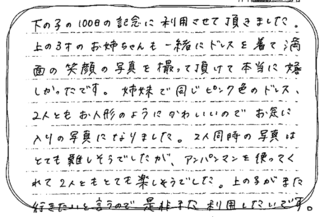 下の子の100日の記念に利用させて頂きました。
上の3才のお姉ちゃんも一緒にドレスを着て満
面の笑顔の写真を撮って頂けて本当に嬉
しかったです。姉妹で同じピンク色のドレス、
2人ともお人形のようにかわいいのでお気に
入りの写真になりました。2人同時の写真は
とても難しそうでしたが、アンパンマンを使ってく
れて2人ともとても楽しそうでした。上の子がまた
行きたいと言うので是非また利用したいです。